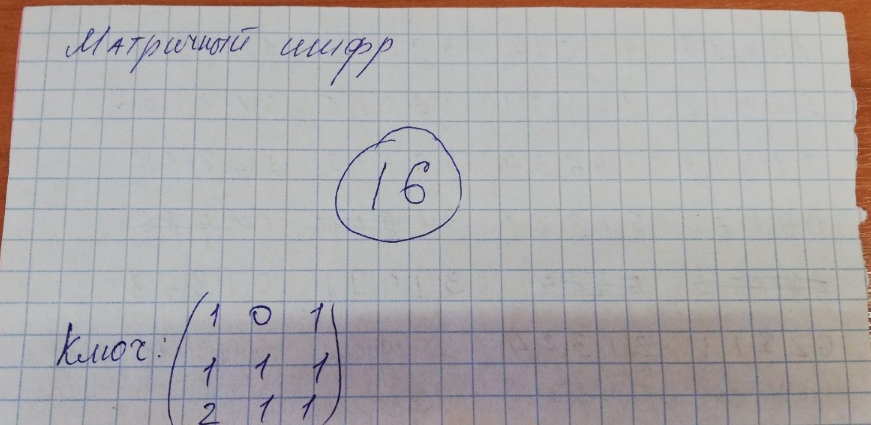 Матричный шифр
16
Ключ: (1 0 1
1 1 1
2 1 1)